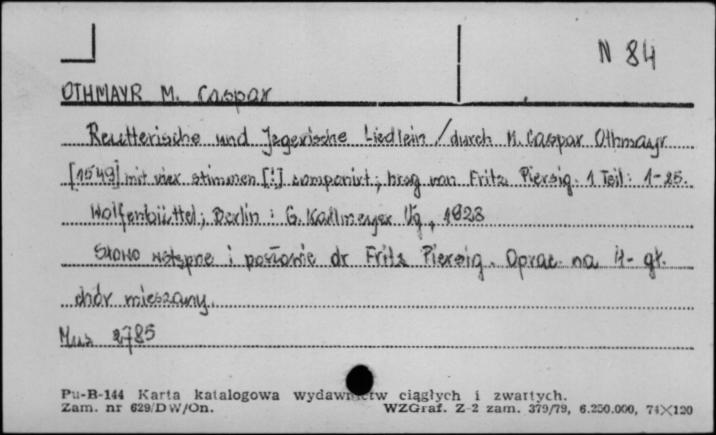 N 84
OTHMAYR M. Caspar
Reutterische und Jegerische Liedlein / durch M. Caspar Othmayr
[1549] mit vier stimmen [!] componirt ; hrsg von Fritz Piersig. 1 Teil: 1-25.
Wolfenbüttel ; Berlin : G. Kallmeyer Vg , 1928
Słowo wstępne i posłowie dr Fritz Piersig. Oprac. na 4-gł.
chór mieszany.
Mus 2785
Pu-B-144 Karta katalogowa wydawnictw ciągłych i zwartych.
Zam. nr 629/DW/On. WZGraf. Z-2 zam. 379/79, 6.250.000, 74×120